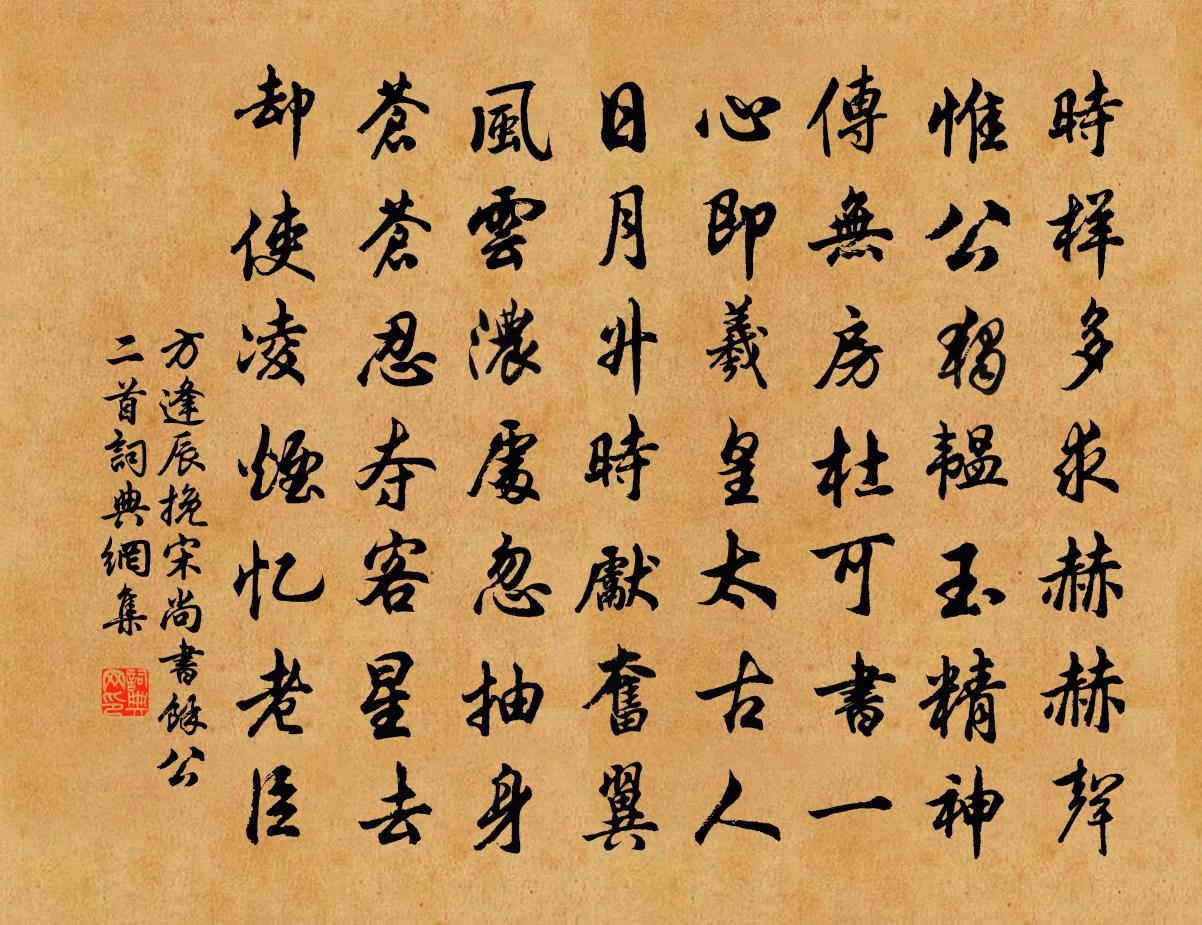 時样多求赫赫聲
惟公獨韞玉精神
傳無房杜可書一
心即羲皇太古人
日月升時獻奮翼
風雲濃處忽抽身
蒼蒼忍夺客星去
却使凌煙忆老臣
方逢辰挽宋尚書餘公
二首詞典網集
詞典网印